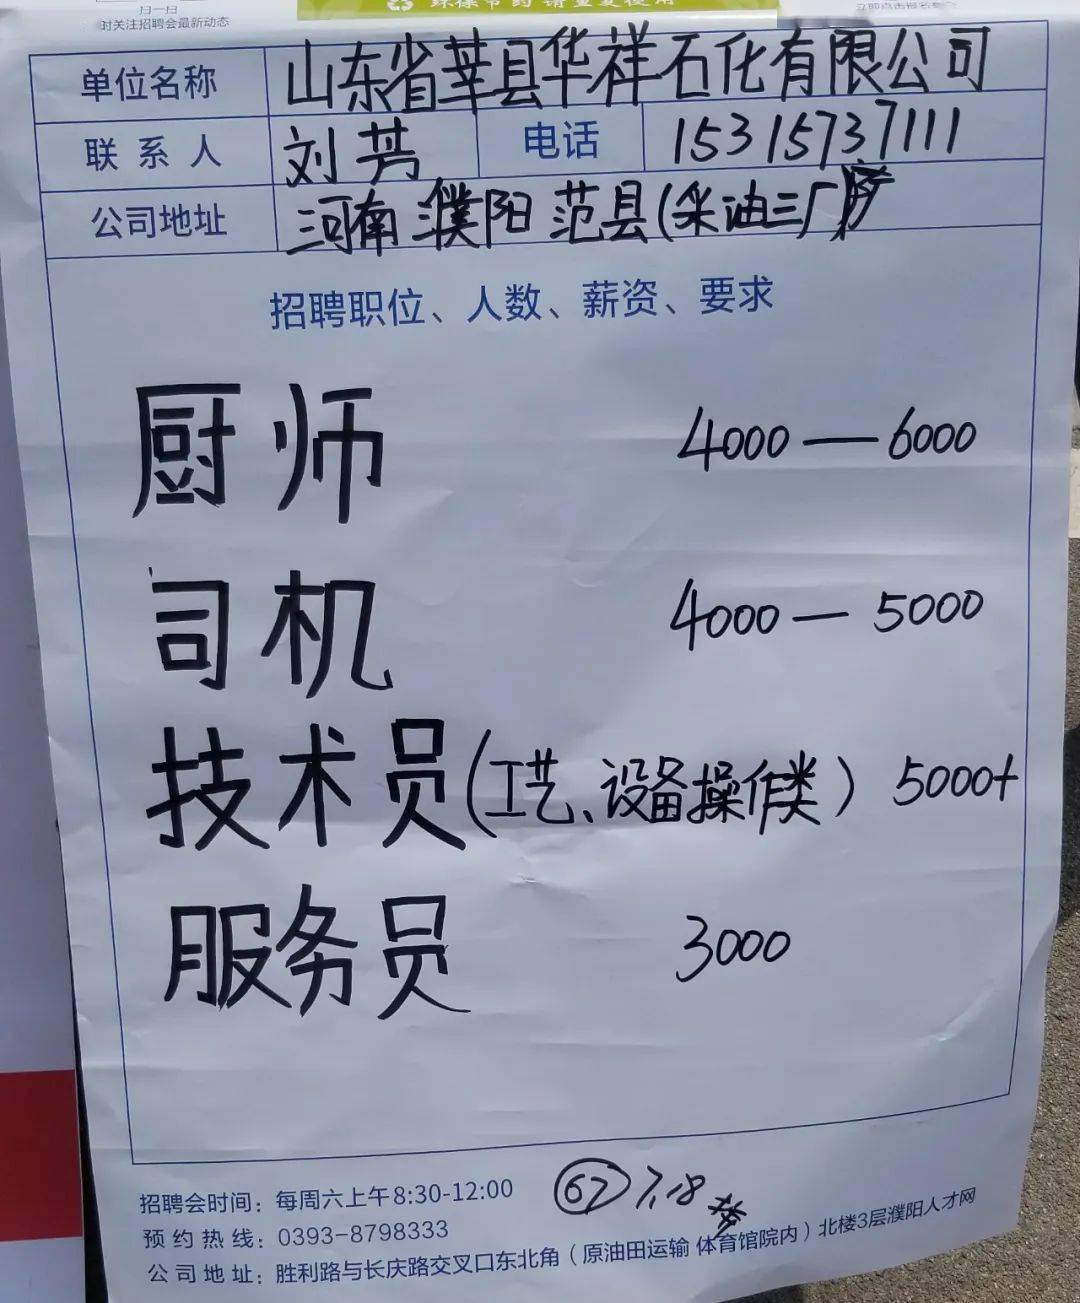 扫一扫
时关注招聘会最新动态
环保节约 请重复使用
单位名称 山东省莘县华祥石化有限公司
联系人 刘芳 电话 15315737111
公司地址 河南濮阳范县(采油三厂
招聘职位、人数、薪资、要求
厨师 4000—6000
司机 4000—5000
技术员(工艺、设备操作类) 5000+
服务员 3000
招聘会时间：每周六上午8:30-12:00 67 7.18
预约热线：0393-8798333
公司地址：胜利路与长庆路交叉口东北角（原油田运输 体育馆院内）北楼3层濮阳人才网